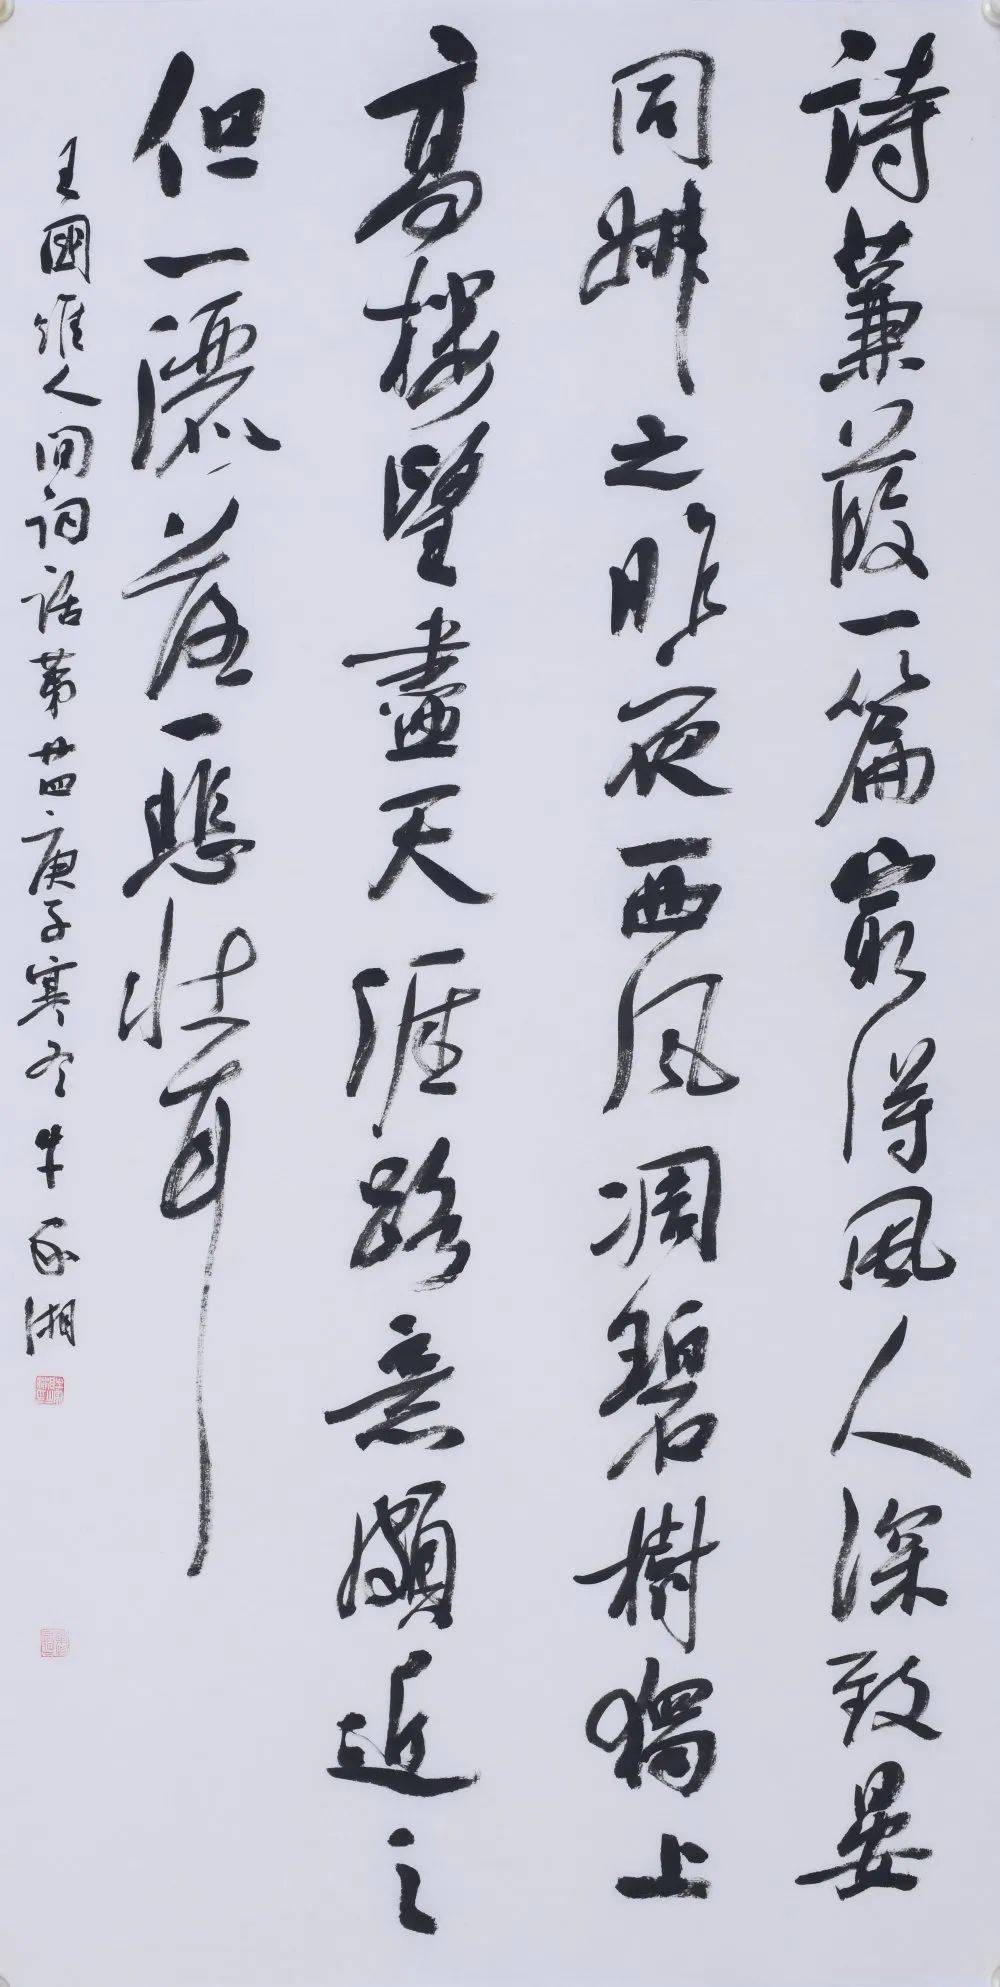 詩蒹葭一篇最得風人深致晏
同叔之昨夜西風凋碧樹獨上
高樓望盡天涯路意頗近之
但一灑落一悲壯耳
王國維人間詞話第廿四庚子寒冬牛湘